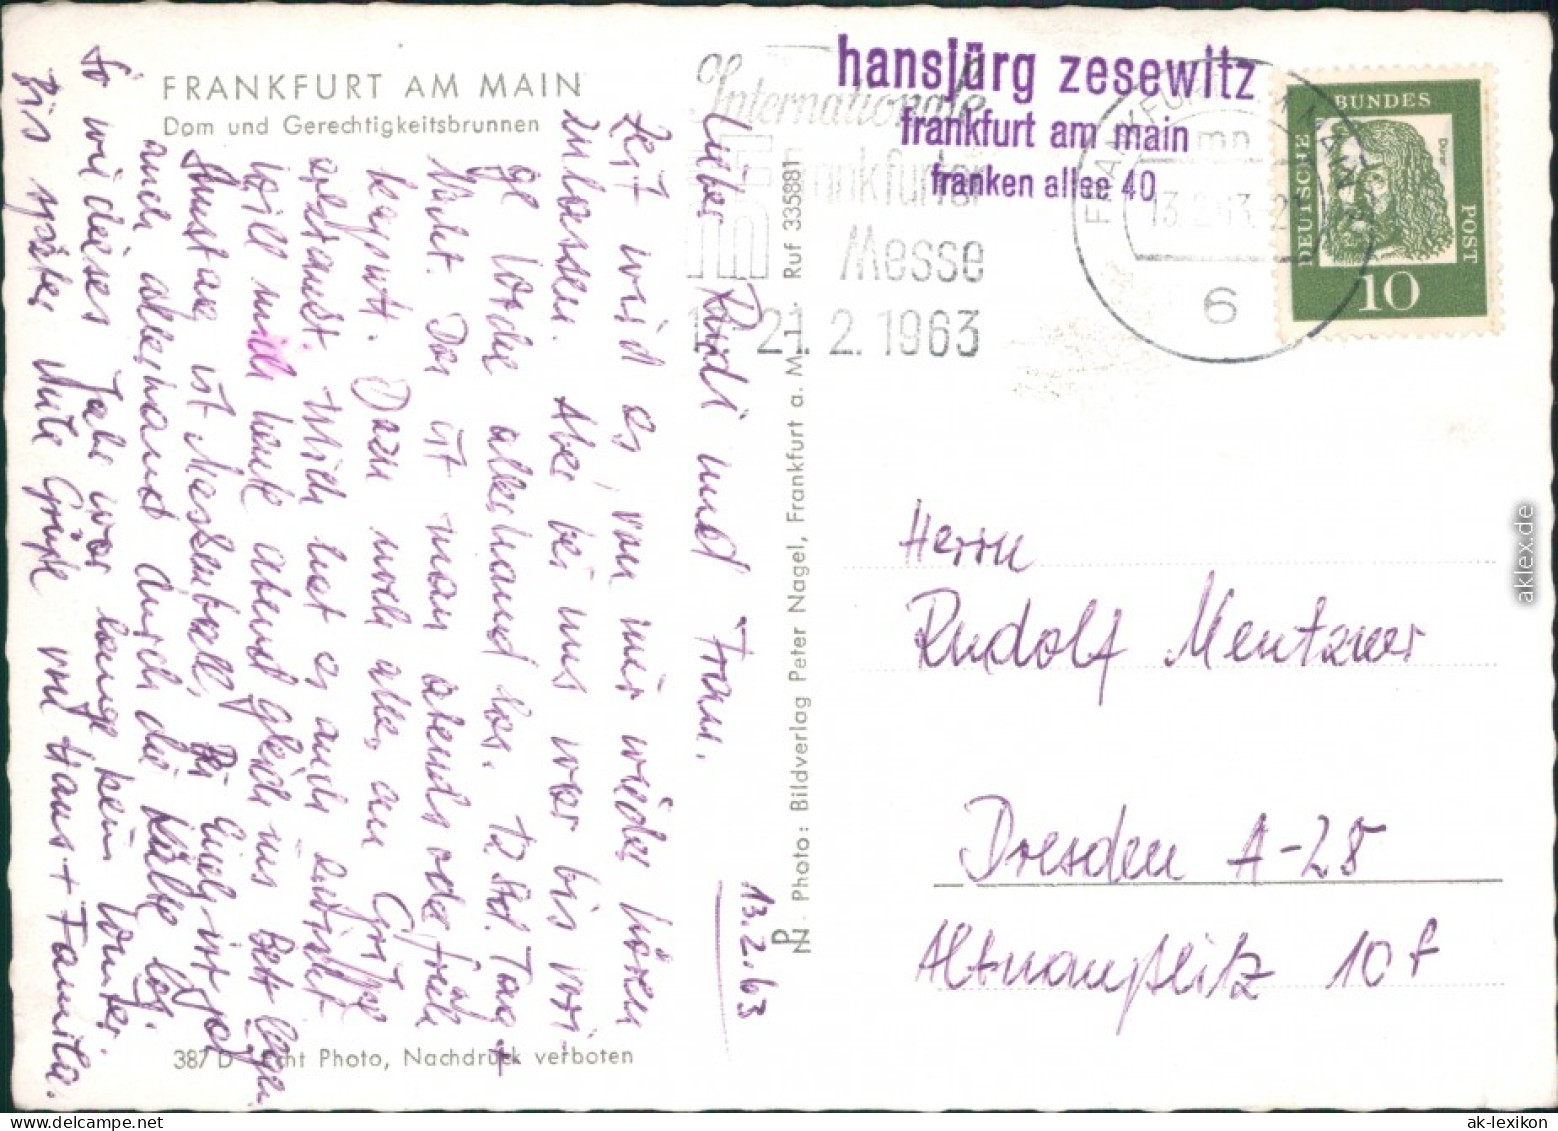 FRANKFURT AM MAIN
Dom und Gerechtigkeitsbrunnen
hansjürg zesewitz
frankfurt am main
franken allee 40
Internationale
Frankfurter
Messe
21. 2. 1963
FRANKFURT MAIN
mn
13. 2. 63
6
DEUTSCHE
BUNDES
POST
Dürer
10
13.2.63
Lieber Rudi und Frau.
Zeit wird es, von mir wieder hören
zulassen. Aber bei uns war bis vori
ge Woche allerhand los. 12 Std. Tag +
Nacht. Da ist man abends oder früh
kaputt. Dazu noch alles an Grippe
erkrankt. Mich hat es auch erwischt
will mich heute abend gleich ins Bett legen
ist Messenball. Bei
auch allerhand durch die Kälte los.
So wie dieses Jahr war lange kein Winter.
Bis später. Gute Grüße von Hans + Familie.
Photo: Bildverlag Peter Nagel, Frankfurt a. M. - Ruf 335881
PN
Herrn
Rudolf Mentzner
Dresden A-28
Altnaußlitz 10 f
387 D Echt Photo, Nachdruck verboten
aklex.de
ak-lexikon